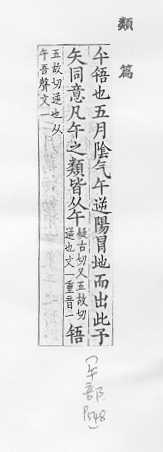 類篇
午啎也五月陰气午逆陽冒地而出此予
矢同意凡午之類皆从午疑古切又五故切
逆也文一重音一啎
五故切逆也从
午吾聲文一
(午部
P548)